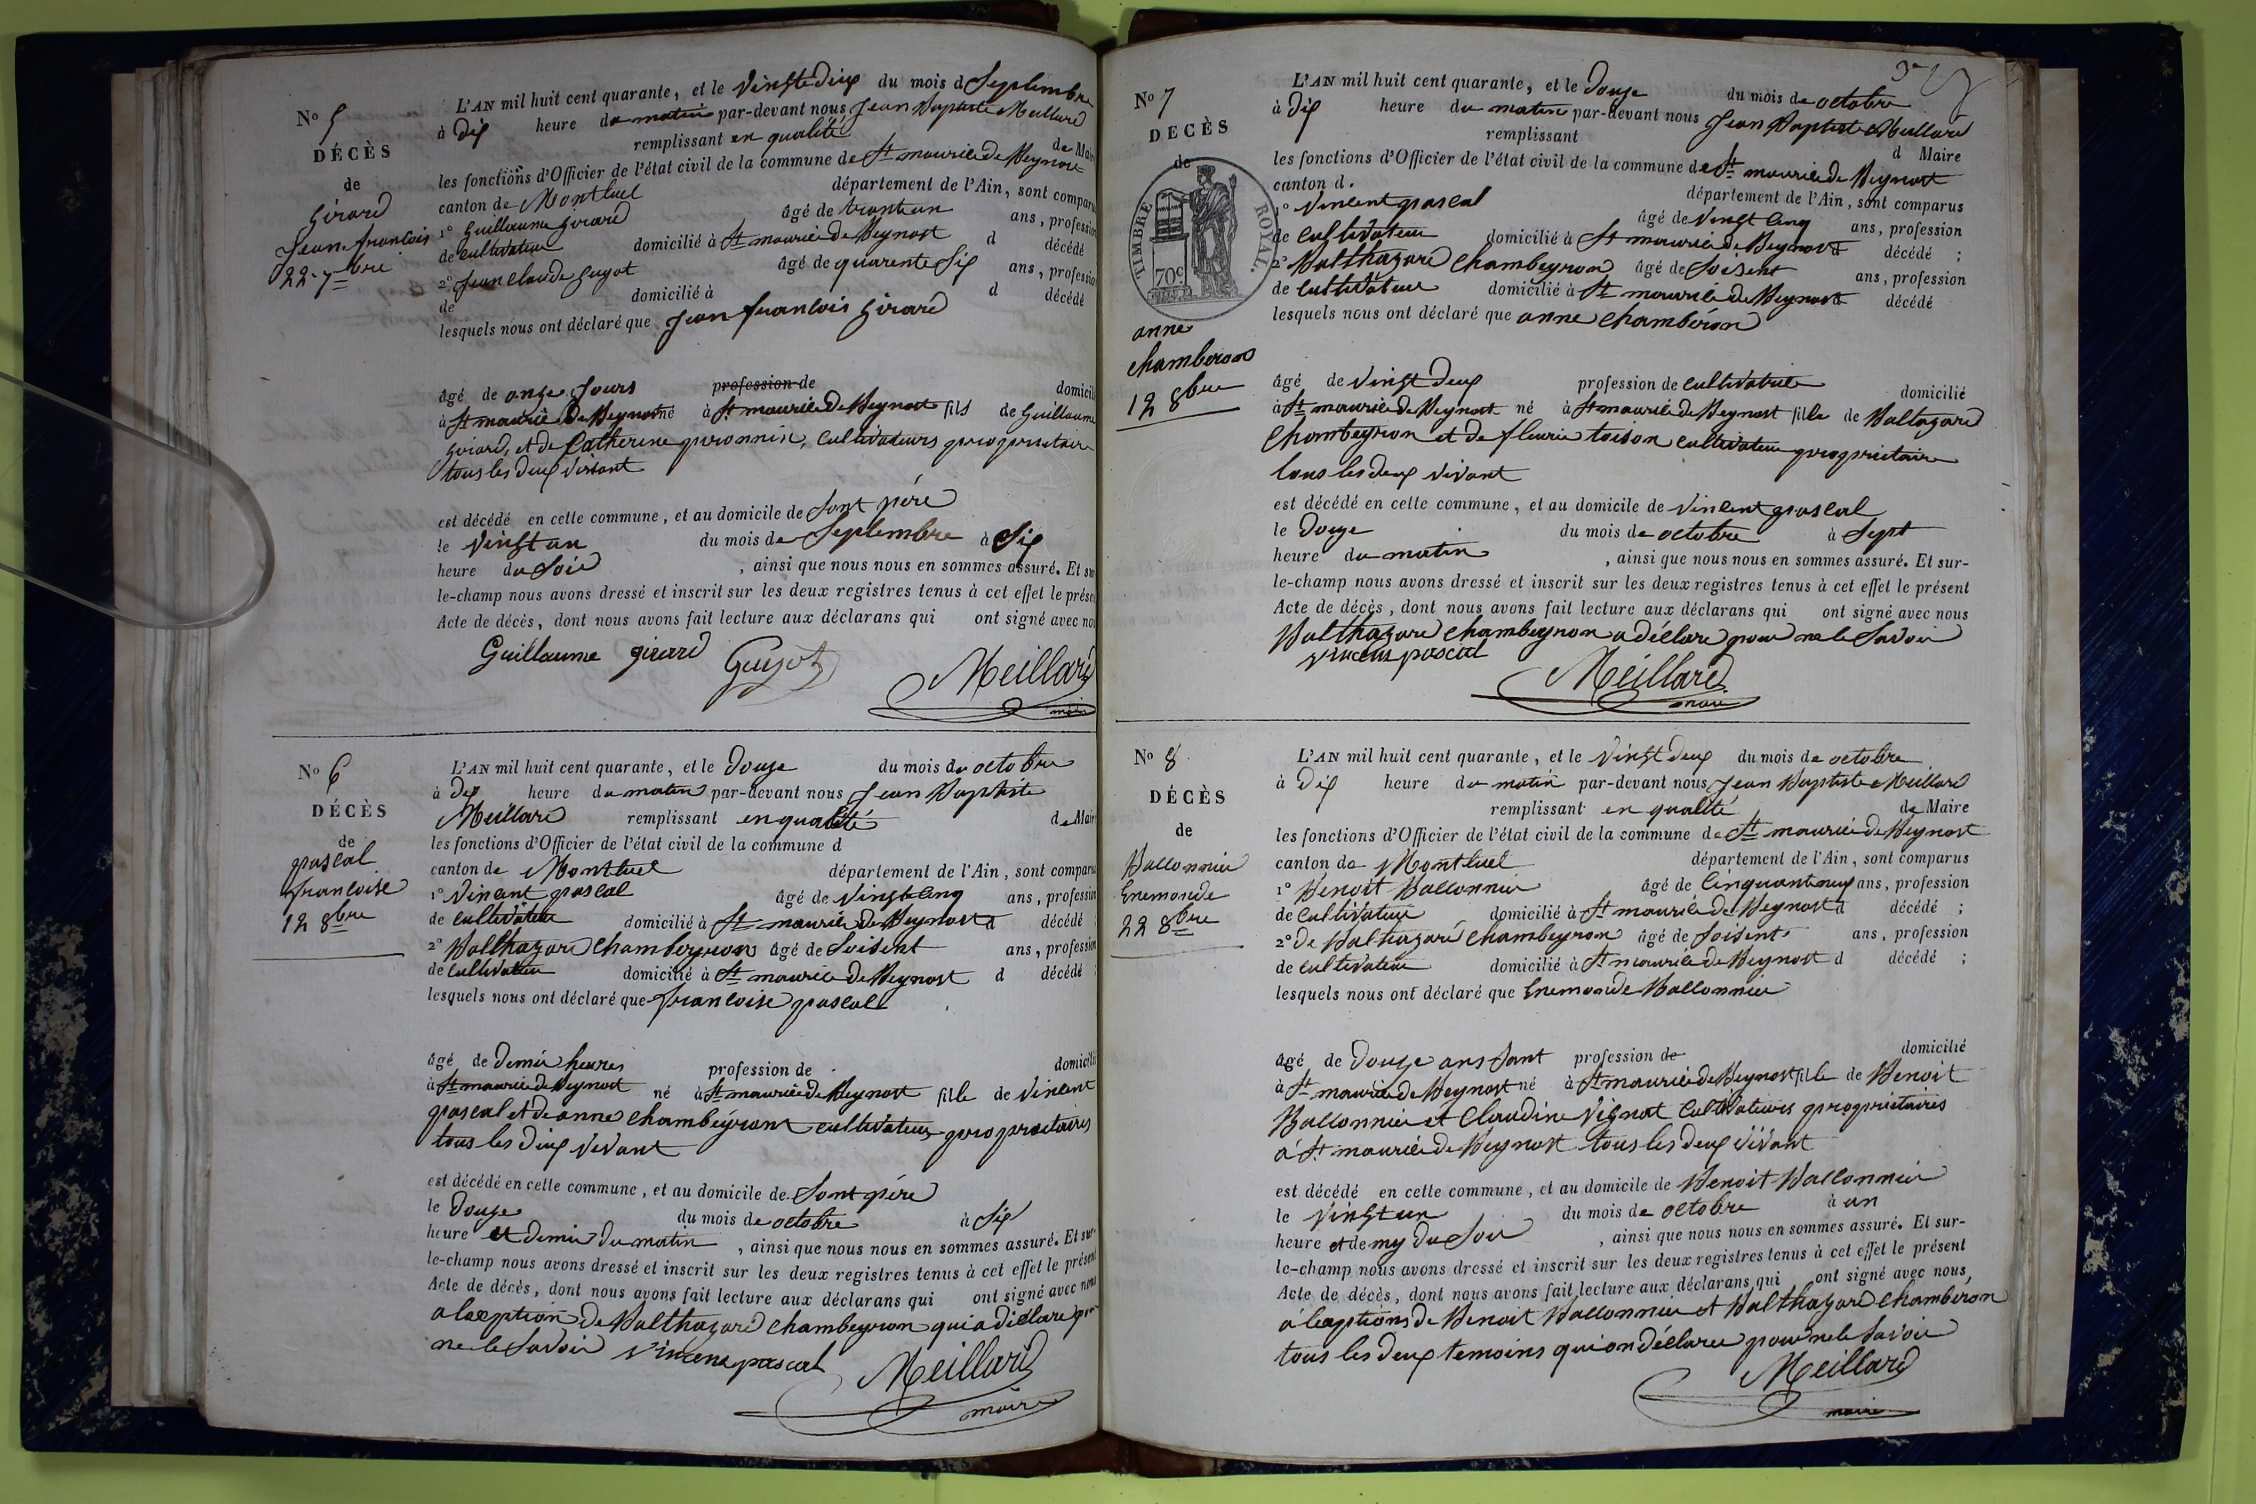 No 5
DÉCÈS
de
Girard
Jean francois
22 7bre
L'AN mil huit cent quarante, et le Vingtedeux du mois d Septembre
à Dix heure du matin par-devant nous Jean Baptiste Meillard
remplissant en qualité de Mai
les fonctions d'Officier de l'état civil de la commune de St maurice de Beynost
canton de Montluel département de l'Ain, sont comparu
1o Guillaume Girard âgé de trentun ans, profession
de cultivateur domicilié à St maurice de Beynost d décédé
2o Jean Claude Guyot âgé de quarente Six ans, profession
de domicilié à d décédé
lesquels nous ont déclaré que Jean francois Girard
âgé de onze Jours profession de domicili
à St maurice de Beynost né à St maurice de Beynost fils de Guillaume
Girard, et de Catherine peronnin, cultivateurs propriétaire
tous les deux vivant
est décédé en cette commune, et au domicile de Sont père
le Vingt un du mois de Septembre à Six
heure du Soir , ainsi que nous nous en sommes assuré. Et sur
le-champ nous avons dressé et inscrit sur les deux registres tenus à cet effet le prése
Acte de décès, dont nous avons fait lecture aux déclarans qui ont signé avec nou
Guillaume girard Guyot Meillard
maire
No 6
DÉCÈS
de
pascal
francoise
12 8bre
L'AN mil huit cent quarante, et le Douze du mois de octobre
à Dix heure du matin par-devant nous Jean Baptiste
Meillard remplissant en qualité de Mair
les fonctions d'Officier de l'état civil de la commune d
canton de Montluel département de l'Ain, sont comparu
1o Vincent pascal âgé de Vingt Cinq ans, profession
de cultivateur domicilié à St maurice de Beynost d décédé
2o Balthazard Chambeyron âgé de Soisent ans, profession
de cultivateur domicilié à St maurice de Beynost d décédé ;
lesquels nous ont déclaré que francoise pascal
âgé de Demie heures profession de domicili
à St maurice de Beynost né à St maurice de Beynost fille de Vincent
pascal et de anne Chambeyront cultivateur propriétaires
tous les Deux Vivant
est décédé en cette commune, et au domicile de Sont père
le Douze du mois de octobre à Six
heure et Demie du matin , ainsi que nous nous en sommes assuré. Et sur-
le-champ nous avons dressé et inscrit sur les deux registres tenus à cet effet le présent
Acte de décès, dont nous avons fait lecture aux déclarans qui ont signé avec nous
a lexeption de Balthazard Chambeyron qui a déclaré pour
ne le Savoir Vincent pascal Meillard
maire
No 7
DÉCÈS
de
TIMBRE ROYAL.
70c
anne
chamberon
12 8bre
L'AN mil huit cent quarante, et le Douze du mois de octobre
à Dix heure du matin par-devant nous Jean Baptiste Meillard
remplissant d Maire
les fonctions d'Officier de l'état civil de la commune de St maurice de Beynost
canton d. département de l'Ain, sont comparus
1o Vincent pascal âgé de Vingt Cinq ans, profession
de Cultivateur domicilié à St maurice de Beynost d décédé ;
2o Balthazard Chambeyron âgé de Soisent ans, profession
de Cultivateur domicilié à St maurice de Beynost d décédé
lesquels nous ont déclaré que anne Chambéron
âgé de Vingt Deux profession de cultivatrice domicilié
à St maurice de Beynost né à St maurice de Beynost fille de Baltazard
Chambeyron et de fleurie toison cultivateur propriétaire
tous les deux vivant
est décédé en cette commune, et au domicile de Vincent pascal
le Douze du mois de octobre à Sept
heure du matin , ainsi que nous nous en sommes assuré. Et sur-
le-champ nous avons dressé et inscrit sur les deux registres tenus à cet effet le présent
Acte de décès, dont nous avons fait lecture aux déclarans qui ont signé avec nous
Balthazard Chambeyron a déclaré pour ne le Savoir
Vincent pascal
Meillard
maire
No 8
DÉCÈS
de
Ballonnier
Enemonde
22 8bre
L'AN mil huit cent quarante, et le Vingt Deux du mois de octobre
à Dix heure du matin par-devant nous Jean Baptiste Meillard
remplissant en qualité de Maire
les fonctions d'Officier de l'état civil de la commune de St maurice de Beynost
canton de Montluel département de l'Ain, sont comparus
1o Benoit Ballonnier âgé de Cinquant neuf ans, profession
de Cultivateur domicilié à St maurice de Beynost d décédé ;
2o De Balthazard Chambeyron âgé de Soisent ans, profession
de cultivateur domicilié à St maurice de Beynost d décédé ;
lesquels nous ont déclaré que Enemonde Ballonnier
âgé de Douze ans Sant profession de domicilié
à St maurice de Beynost né à St maurice de Beynost fille de Benoit
Ballonnier et Claudine Vignat cultivateurs propriétaires
à St maurice de Beynost tous les deux vivant
est décédé en cette commune, et au domicile de Benoit Ballonnier
le Vingt un du mois de octobre à un
heure et demy du Soir , ainsi que nous nous en sommes assuré. Et sur-
le-champ nous avons dressé et inscrit sur les deux registres tenus à cet effet le présent
Acte de décès, dont nous avons fait lecture aux déclarans qui ont signé avec nous,
a lexeptions de Benoit Ballonnier et Balthazard Chamberon
tous les deux temoins qui on déclaree pour ne le Savoir
Meillard
maire